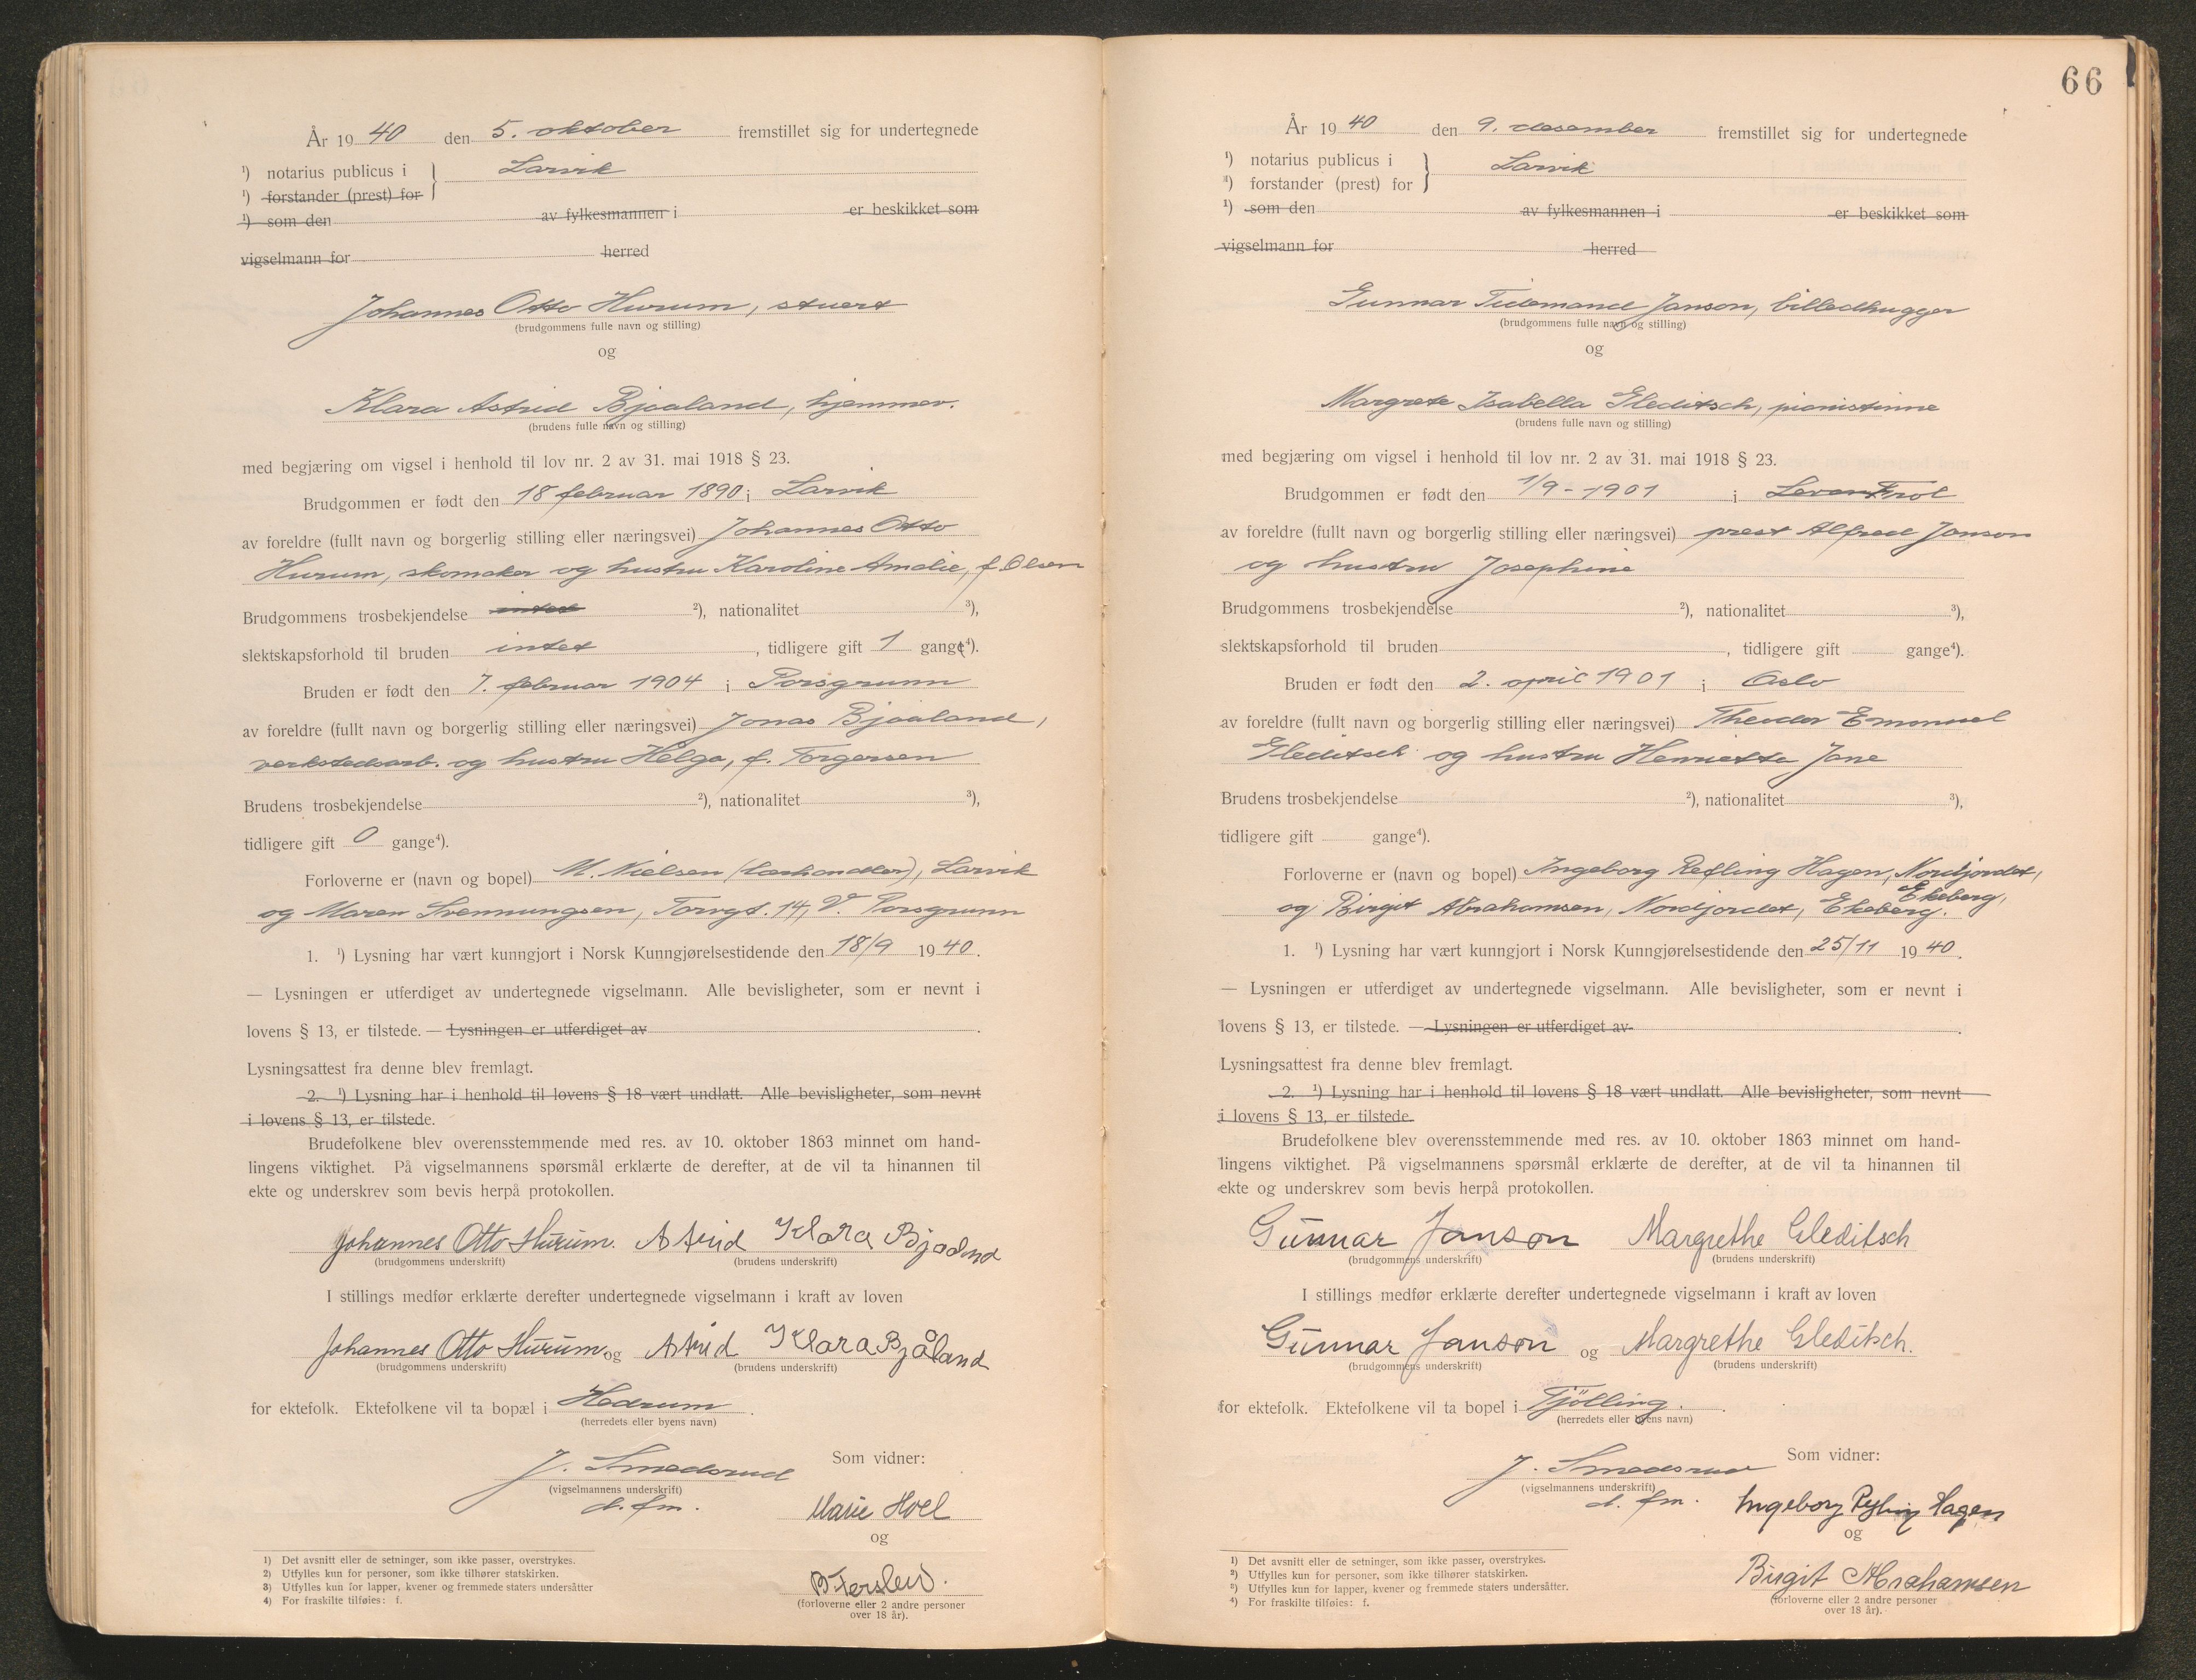 År 19 40 den 5. oktober fremstillet sig for undertegnede
¹) notarius publicus i } Larvik
¹) forstander (prest) for
¹) som den av fylkesmannen i er beskikket som
vigselmann for herred
Johannes Otto Hurum, stuert
(brudgommens fulle navn og stilling)
og
Klara Astrid Bjaaland, hjemmev.
(brudens fulle navn og stilling)
med begjæring om vigsel i henhold til lov nr. 2 av 31. mai 1918 § 23.
Brudgommen er født den 18 februar 1890 i Larvik
av foreldre (fullt navn og borgerlig stilling eller næringsvei) Johannes Otto
Hurum, skomaker og hustru Karoline Amalie, f. Olsen
Brudgommens trosbekjendelse intet ²), nationalitet ³),
slektskapsforhold til bruden intet , tidligere gift 1 gange⁴).
Bruden er født den 7. februar 1904 i Porsgrunn
av foreldre (fullt navn og borgerlig stilling eller næringsvei) Jonas Bjaaland,
verkstedsarb. og hustru Helga, f. Torgersen
Brudens trosbekjendelse ²), nationalitet ³),
tidligere gift 0 gange⁴).
Forloverne er (navn og bopel) M. Nielsen (lærhandler), Larvik
og Maren Svennungsen, Torvgt. 14, V. Porsgrunn
1. ¹) Lysning har vært kunngjort i Norsk Kunngjørelsestidende den 18/9 1940.
— Lysningen er utferdiget av undertegnede vigselmann. Alle bevisligheter, som er nevnt i
lovens § 13, er tilstede. — Lysningen er utferdiget av .
Lysningsattest fra denne blev fremlagt.
2. ¹) Lysning har i henhold til lovens § 18 vært undlatt. Alle bevisligheter, som nevnt
i lovens § 13, er tilstede.
Brudefolkene blev overensstemmende med res. av 10. oktober 1863 minnet om hand-
lingens viktighet. På vigselmannens spørsmål erklærte de derefter, at de vil ta hinannen til
ekte og underskrev som bevis herpå protokollen.
Johannes Otto Hurum. Astrid Klara Bjaaland
(brudgommens underskrift) (brudens underskrift)
I stillings medfør erklærte derefter undertegnede vigselmann i kraft av loven
Johannes Otto Hurum og Astrid Klara Bjåland
(brudgommens underskrift) (brudens underskrift)
for ektefolk. Ektefolkene vil ta bopæl i Hedrum .
(herredets eller byens navn)
J. Smedsrud Som vidner:
(vigselmannens underskrift)
d. fm.
Marie Hoel
og
B Ferslew.
(forloverne eller 2 andre personer
over 18 år).
¹) Det avsnitt eller de setninger, som ikke passer, overstrykes.
²) Utfylles kun for personer, som ikke tilhører statskirken.
³) Utfylles kun for lapper, kvener og fremmede staters undersåtter
⁴) For fraskilte tilføies: f.
66
År 19 40 den 9. desember fremstillet sig for undertegnede
¹) notarius publicus i } Larvik
¹) forstander (prest) for
¹) som den av fylkesmannen i er beskikket som
vigselmann for herred
Gunnar Tidemand Janson, billedhugger
(brudgommens fulle navn og stilling)
og
Margrete Isabella Gleditsch, pianistinne
(brudens fulle navn og stilling)
med begjæring om vigsel i henhold til lov nr. 2 av 31. mai 1918 § 23.
Brudgommen er født den 1/9-1901 i Frol
av foreldre (fullt navn og borgerlig stilling eller næringsvei) prest Alfred Janson
og hustru Josephine
Brudgommens trosbekjendelse ²), nationalitet ³),
slektskapsforhold til bruden , tidligere gift gange⁴).
Bruden er født den 2. april 1901 i Oslo
av foreldre (fullt navn og borgerlig stilling eller næringsvei) Theodor Emanuel
Gleditsch og hustru Henriette Jane
Brudens trosbekjendelse ²), nationalitet ³),
tidligere gift gange⁴).
Forloverne er (navn og bopel) Ingeborg Refling Hagen, Nordjordet,
Ekeberg,
og Birgit Abrahamsen, Nordjordet, Ekeberg.
1. ¹) Lysning har vært kunngjort i Norsk Kunngjørelsestidende den 25/11 1940.
— Lysningen er utferdiget av undertegnede vigselmann. Alle bevisligheter, som er nevnt i
lovens § 13, er tilstede. — Lysningen er utferdiget av .
Lysningsattest fra denne blev fremlagt.
2. ¹) Lysning har i henhold til lovens § 18 vært undlatt. Alle bevisligheter, som nevnt
i lovens § 13, er tilstede.
Brudefolkene blev overensstemmende med res. av 10. oktober 1863 minnet om hand-
lingens viktighet. På vigselmannens spørsmål erklærte de derefter, at de vil ta hinannen til
ekte og underskrev som bevis herpå protokollen.
Gunnar Janson Margrethe Gleditsch
(brudgommens underskrift) (brudens underskrift)
I stillings medfør erklærte derefter undertegnede vigselmann i kraft av loven
Gunnar Janson og Margrethe Gleditsch.
(brudgommens underskrift) (brudens underskrift)
for ektefolk. Ektefolkene vil ta bopel i Tjölling. .
(herredets eller byens navn)
J. Smedsrud Som vidner:
(vigselmannens underskrift)
d. fm.
Ingeborg Refling Hagen
og
Birgit Abrahamsen
(forloverne eller 2 andre personer
over 18 år).
¹) Det avsnitt eller de setninger, som ikke passer, overstrykes.
²) Utfylles kun for personer, som ikke tilhører statskirken.
³) Utfylles kun for lapper, kvener og fremmede staters undersåtter.
⁴) For fraskilte tilføies: f.